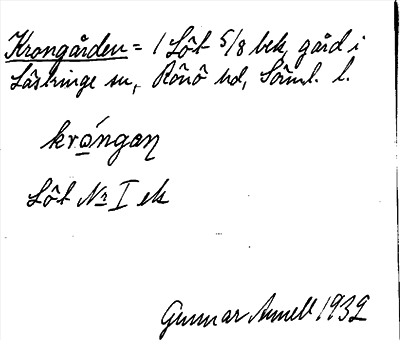 Krongården = 1 Löt 5/8 bek, gård i
Lästringe sn, Rönö hd, Söml. l.
krån̄gan
Löt № I ek
Gunnar Annell 1932